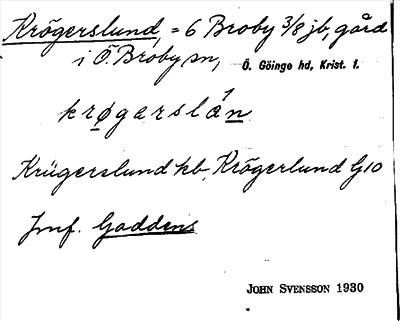 Krögerslund, = 6 Broby 3/8 jb, gård
i Ö. Broby sn, Ö. Göinge hd, Krist. l.
krøgarslån
Krügerslund kb, Krögerlund G10
Jmf. Gaddens
JOHN SVENSSON 1930